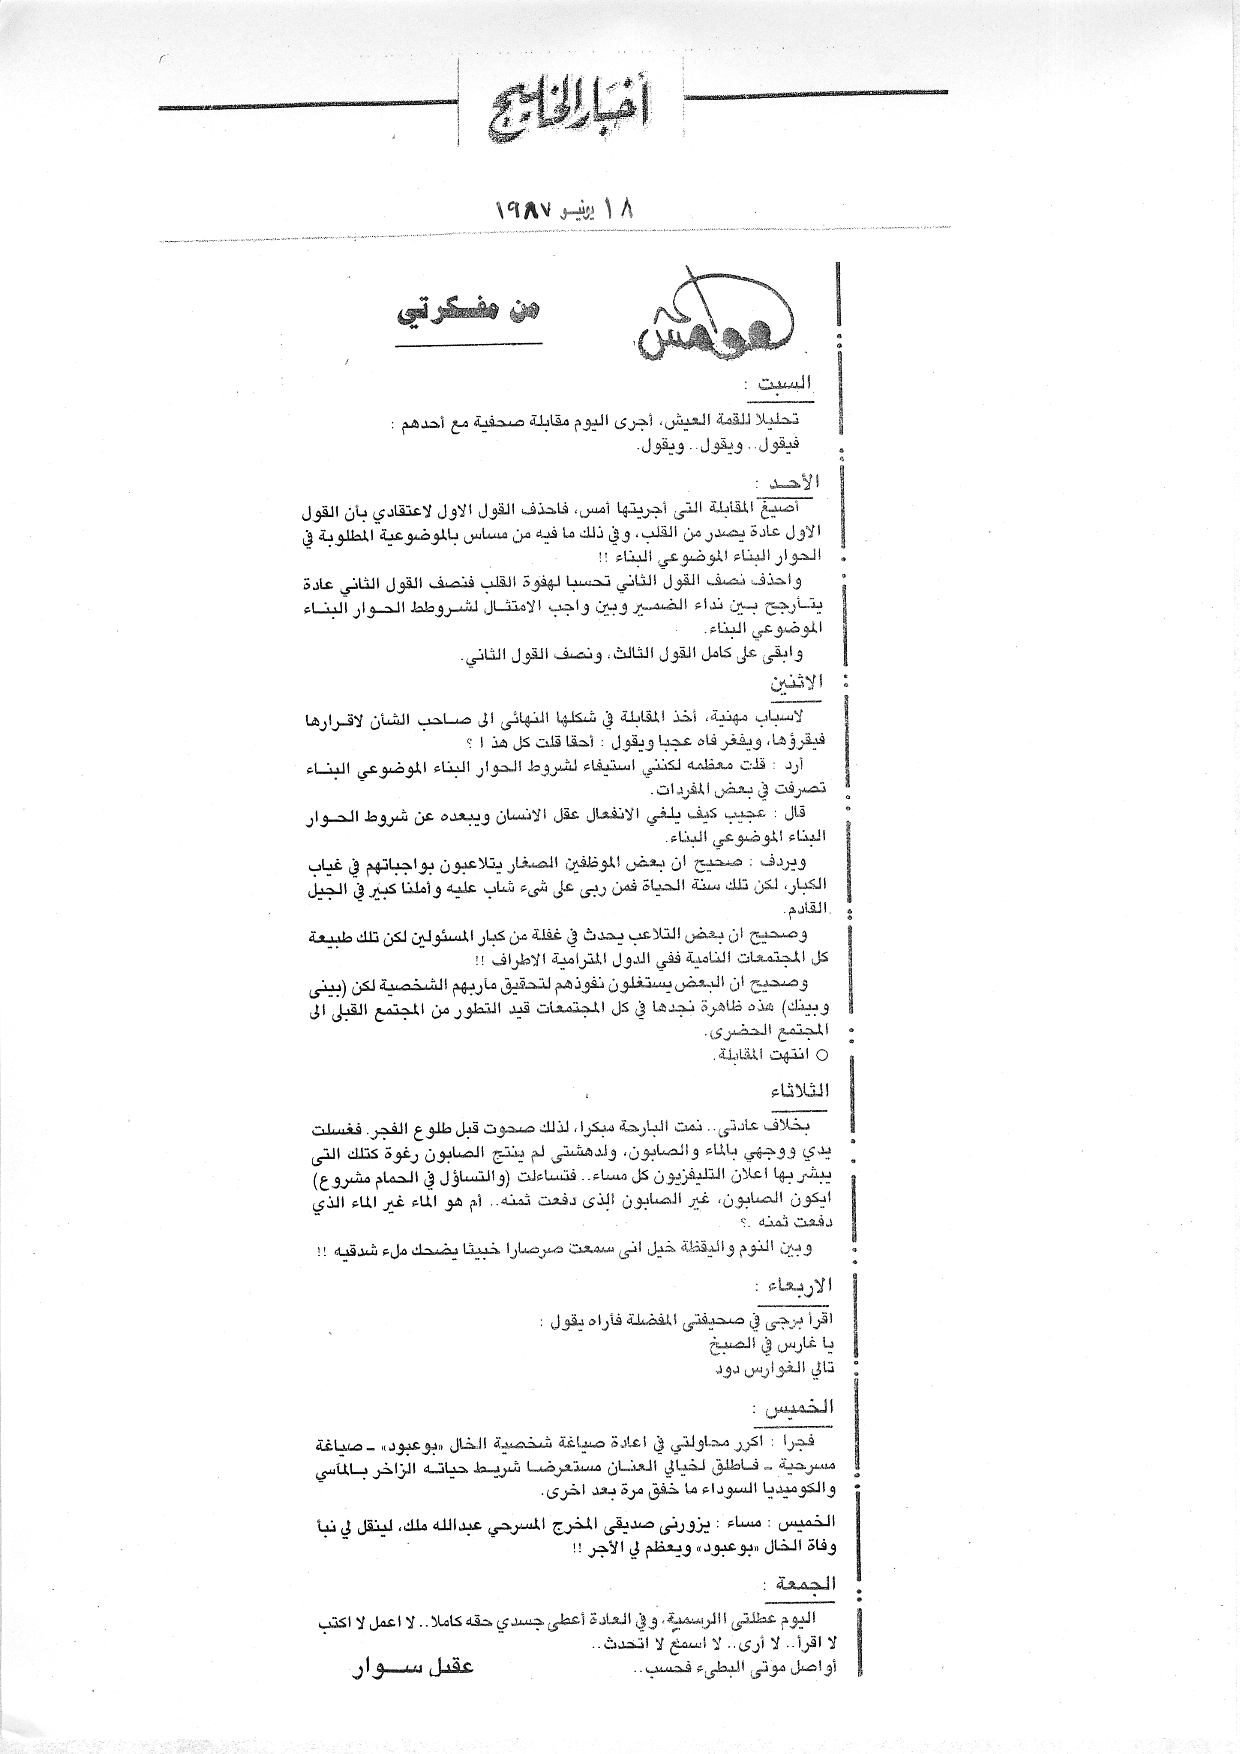 أخبار الخليج
١٨ يونيو ١٩٨٧
هوامش
من مفكرتي
السبت :
تحليلا للقمة العيش، أجرى اليوم مقابلة صحفية مع أحدهم :
فيقول.. ويقول.. ويقول.
الأحد :
أصيغ المقابلة التى أجريتها أمس، فاحذف القول الاول لاعتقادي بأن القول
الاول عادة يصدر من القلب، وفي ذلك ما فيه من مساس بالموضوعية المطلوبة في
الحوار البناء الموضوعي البناء !!
واحذف نصف القول الثاني تحسبا لهفوة القلب فنصف القول الثاني عادة
يتأرجح بين نداء الضمير وبين واجب الامتثال لشروطط الحوار البناء
الموضوعي البناء.
وابقى على كامل القول الثالث، ونصف القول الثاني.
الاثنين
لاسباب مهنية، أخذ المقابلة في شكلها النهائى الى صاحب الشأن لاقرارها
فيقرؤها، ويفغر فاه عجبا ويقول : أحقا قلت كل هذا ؟
أرد : قلت معظمه لكنني استيفاء لشروط الحوار البناء الموضوعي البناء
تصرفت في بعض المفردات.
قال : عجيب كيف يلغي الانفعال عقل الانسان ويبعده عن شروط الحوار
البناء الموضوعي البناء.
ويردف : صحيح ان بعض الموظفين الصغار يتلاعبون بواجباتهم في غياب
الكبار، لكن تلك سنة الحياة فمن ربى على شىء شاب عليه وأملنا كبير في الجيل
القادم.
وصحيح ان بعض التلاعب يحدث في غفلة من كبار المسئولين لكن تلك طبيعة
كل المجتمعات النامية ففي الدول المترامية الاطراف !!
وصحيح ان البعض يستغلون نفوذهم لتحقيق مآربهم الشخصية لكن (بينى
وبينك) هذه ظاهرة نجدها في كل المجتمعات قيد التطور من المجتمع القبلى الى
المجتمع الحضرى.
○ انتهت المقابلة.
الثلاثاء
بخلاف عادتى.. نمت البارحة مبكرا، لذلك صحوت قبل طلوع الفجر. فغسلت
يدي ووجهي بالماء والصابون، ولدهشتى لم ينتج الصابون رغوة كتلك التى
يبشر بها اعلان التليفزيون كل مساء.. فتساءلت (والتساؤل في الحمام مشروع)
ايكون الصابون، غير الصابون الذى دفعت ثمنه.. أم هو الماء غير الماء الذي
دفعت ثمنه .؟
وبين النوم واليقظة خيل انى سمعت صرصارا خبيثا يضحك ملء شدقيه !!
الاربعاء :
اقرأ برجى في صحيفتى المفضلة فأراه يقول :
يا غارس في الصبخ
تالي الغوارس دود
الخميس :
فجرا : اكرر محاولتي في اعادة صياغة شخصية الخال «بوعبود» ـ صياغة
مسرحية ـ فاطلق لخيالي العنان مستعرضا شريط حياته الزاخر بالمآسي
والكوميديا السوداء ما خفق مرة بعد اخرى.
الخميس : مساء : يزورنى صديقى المخرج المسرحي عبدالله ملك، لينقل لي نبأ
وفاة الخال «بوعبود» ويعظم لي الأجر !!
الجمعة :
اليوم عطلتى االرسمية، وفي العادة أعطى جسدي حقه كاملا.. لا اعمل لا اكتب
لا اقرأ.. لا أرى.. لا اسمع لا اتحدث..
أواصل موتى البطىء فحسب..
عقيل سوار